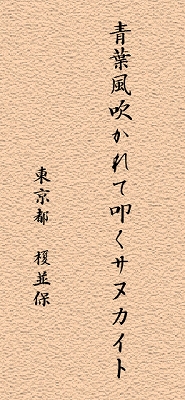 青葉風吹かれて叩くサヌカイト
東京都　榎並保